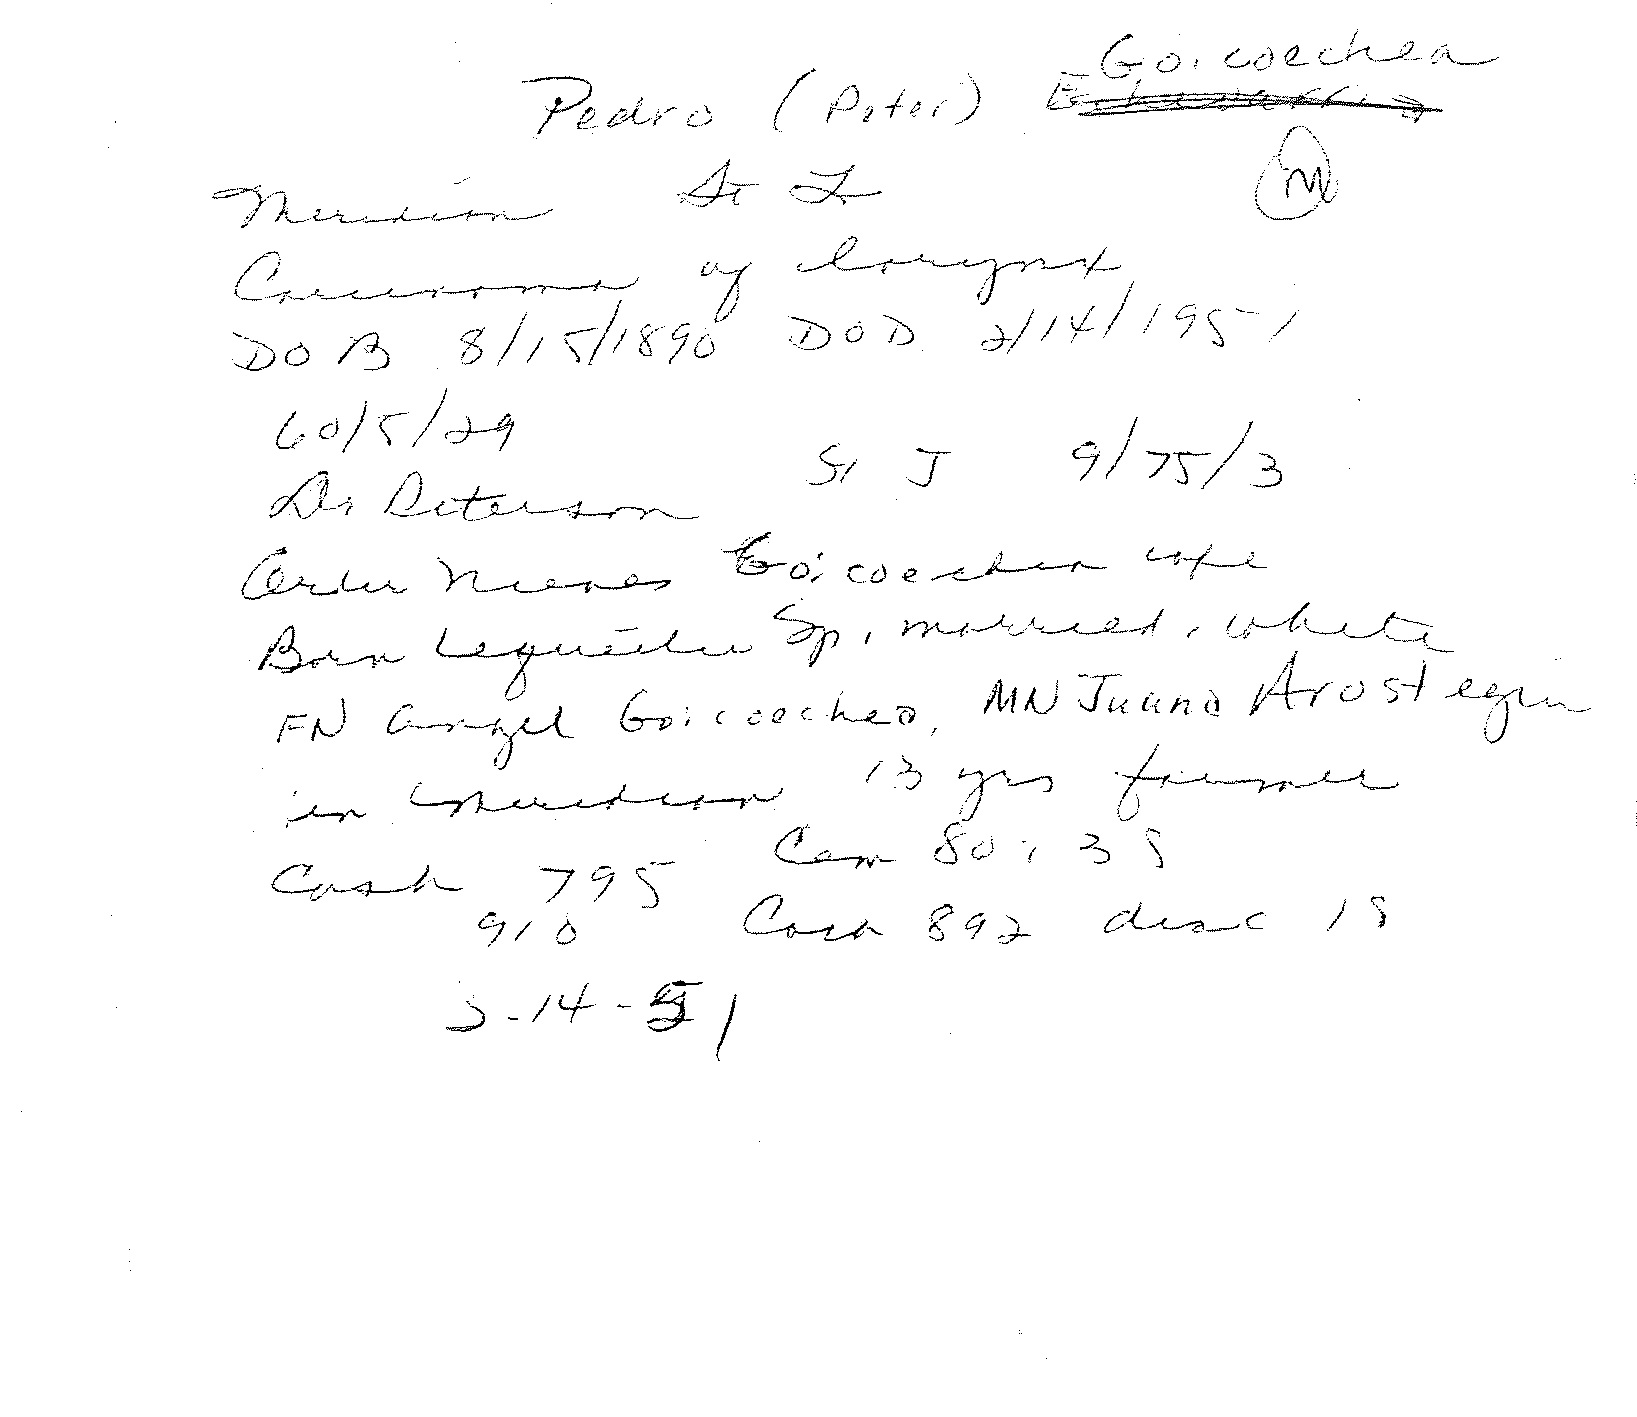 Pedro (Peter) Goicoechea
M
Meridian St L
Carcinoma of larynx
DOB 8/15/1890 DOD 2/14/1951
60/5/29
St J 9/75/3
Dr Peterson
Order Nieves Goicoechea wife
Born Lequeitio Sp, married, white
FN Angel Goicoechea, MN Juana Arostegui
in Meridian 13 yrs farmer
Cash 795 Cem 80, 35
910 Cash 892 disc 18
2-14-51